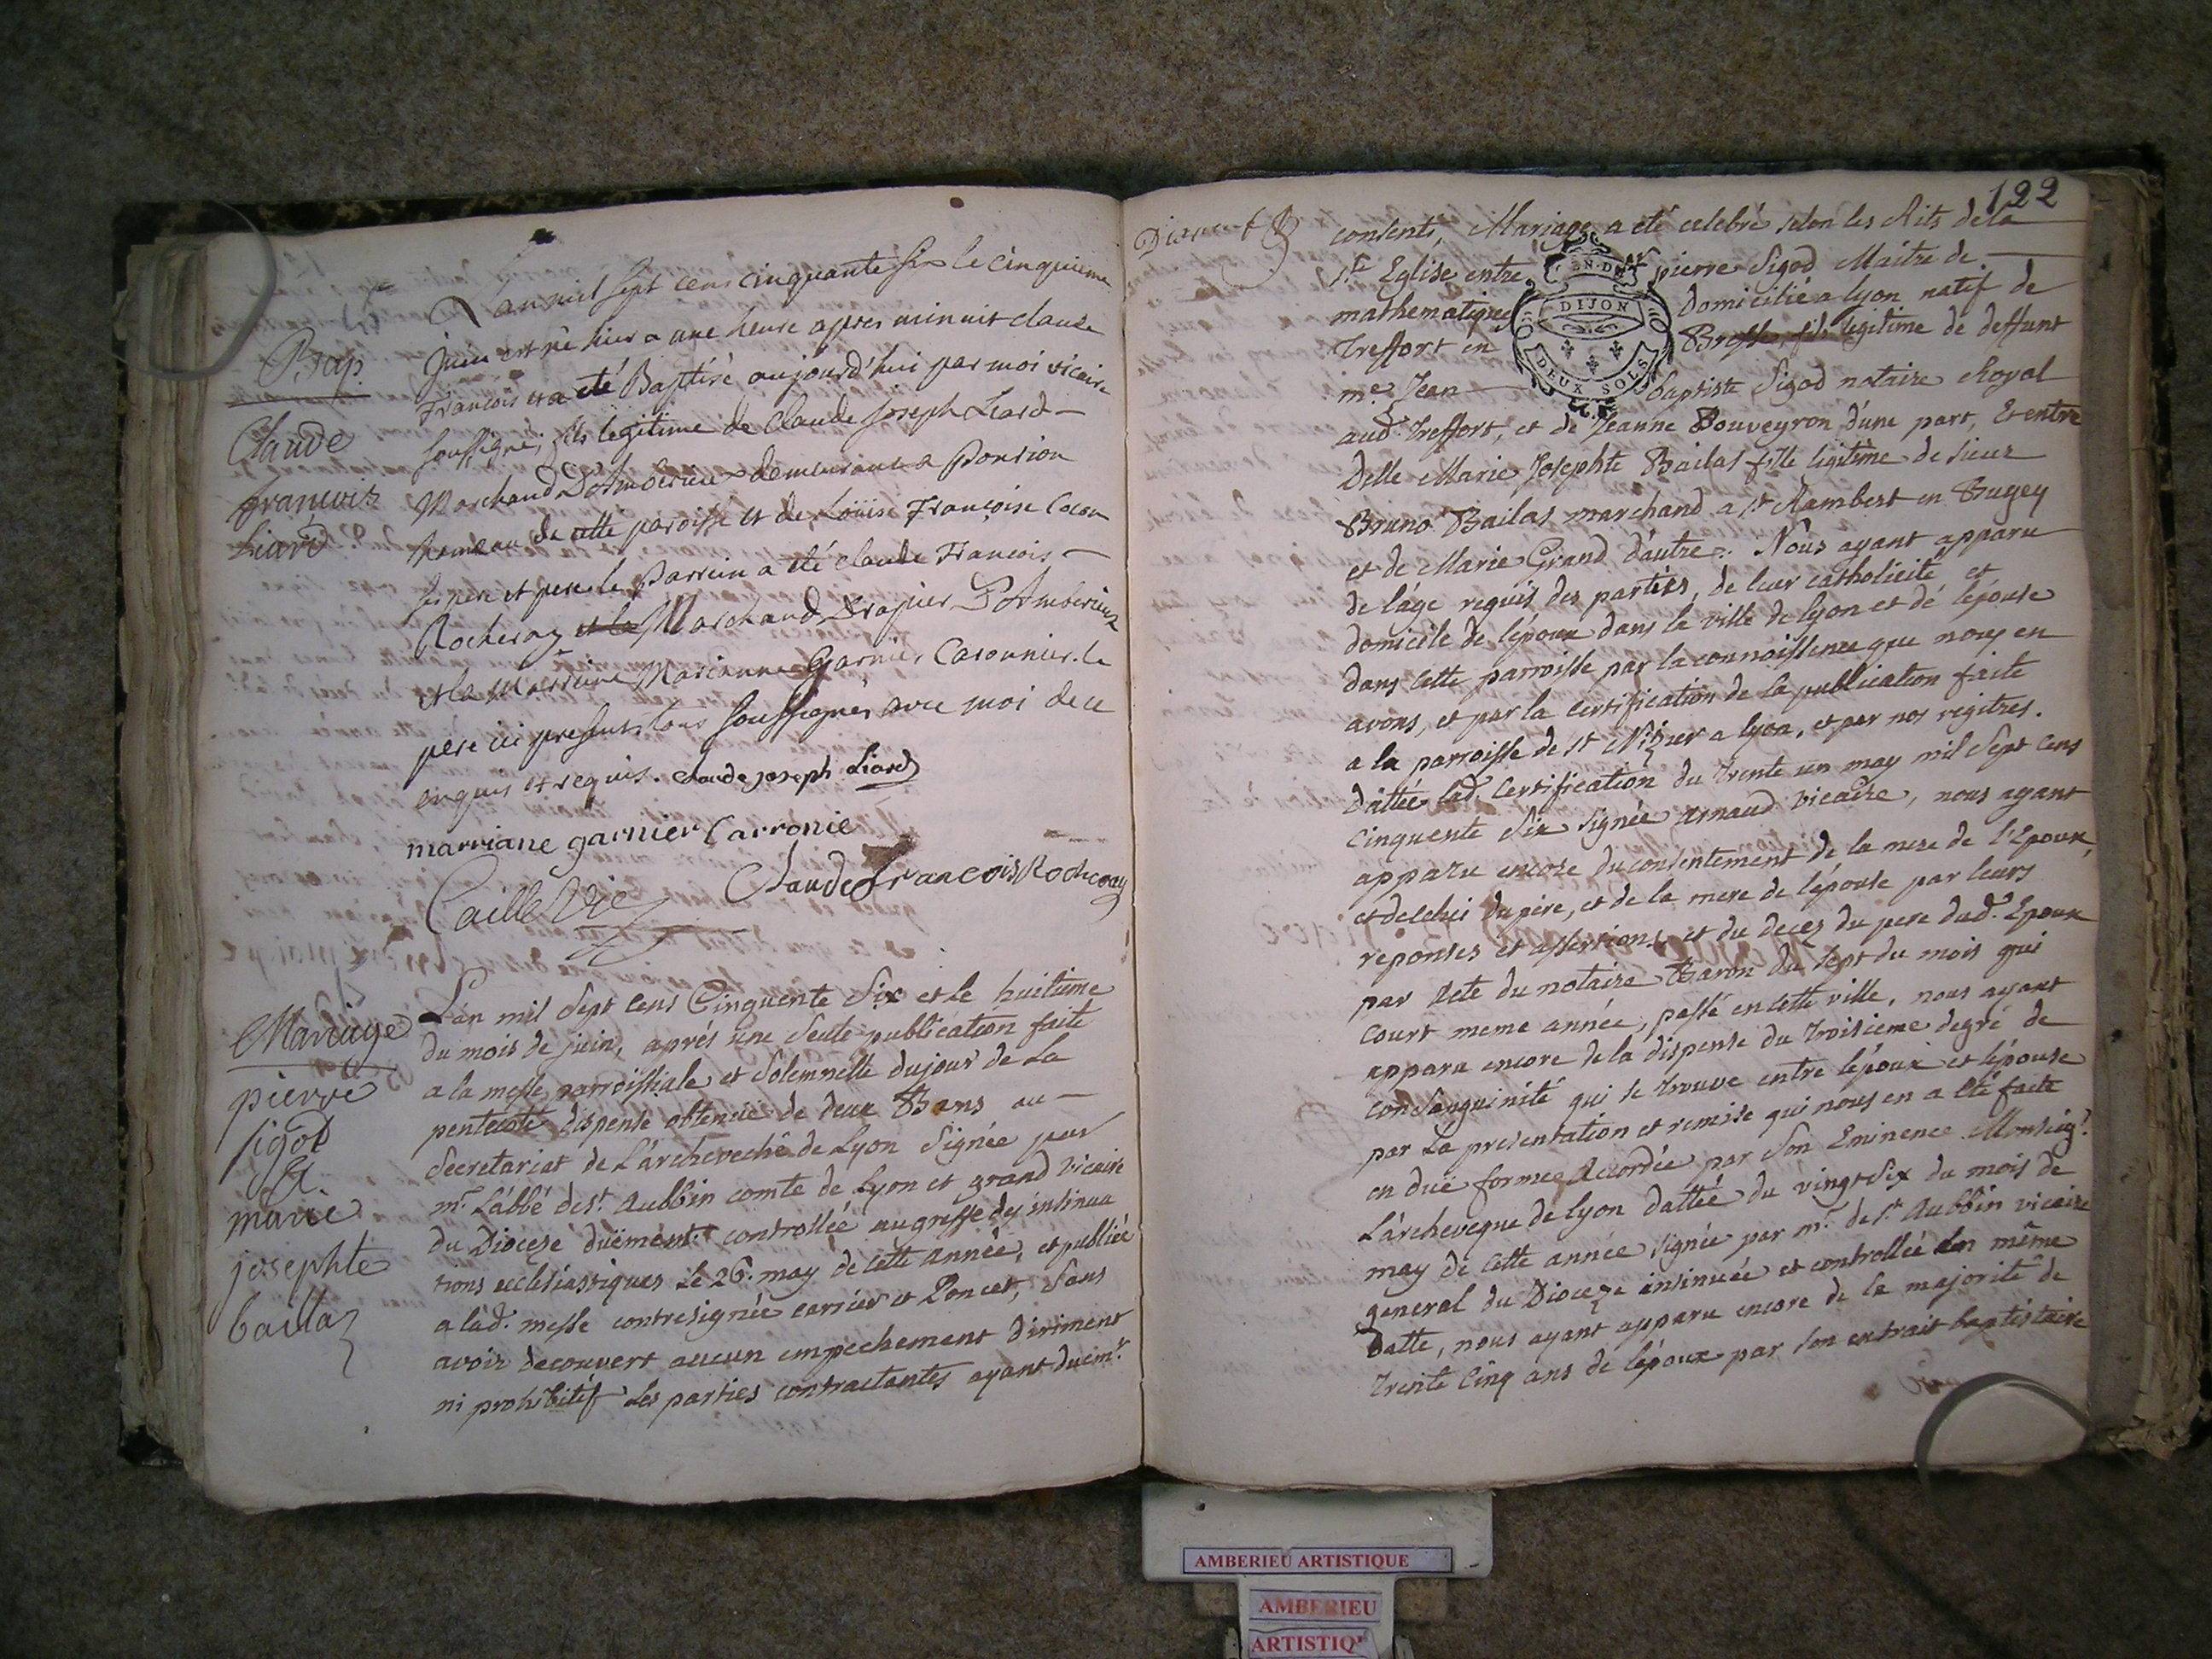 Bap.
Claude
francois
Liard
L'an mil sept cens cinquante six le cinquieme
juin est né hier a une heure apres minuit claude
Francois et a été Baptisé aujourd'hui par moi vicaire
soussigné, fils legitime de Claude Joseph Liard
Marchand D'Amberieu demeurant a Poncion
hameau de cette paroisse et de Loüise Françoise Caron
ses pere et mere le Parrein a été claude Francois
Rocheray et la Marchand Drapier D'Amberieux
et la Marreine Marianne Garnier Caronnier. le
pere ici present tous soussignés avec moi de ce
enquis et requis. claude joseph Liard
marriane garnier Carronie
Caille Vic Claude Francois Rocheray
Mariage
pierre
sigod
&
marie
josephte
bailaz
L'an mil Sept cens Cinquente Six et le huitieme
du mois de juin, aprés une seule publication faite
a la messe parroissiale et Solemnelle du jour de La
pentecôte dispense obtenüe de deux Bans au
Secretariat de L'archeveché de Lyon Signée par
mr. L'abbé de st. Aubbin comte de Lyon et grand Vicaire
du Dioceze düement controllée au greffe des insinua
tions ecclesiastiques Le 26. may de cette année, et publiée
a lad. messe contresignée carrier et Poncet, Sans
avoir decouvert aucun empechement diriment
ni prohibitif Les parties contractantes ayant duemt.
122
consenti, Mariage a eté celebré selon les Rits de la
ste Eglise entre sr pierre Sigod Maitre de
mathematiques domicilié a lyon natif de
Treffort en Bresse, fils legitime de deffunt
me Jean baptiste Sigod notaire Royal
aud. Treffort, et de Jeanne Bouveyron d'une part, Et entre
Delle Marie Josephte Bailas fille legitime de sieur
Bruno Bailas marchand a st. Rambert en Bugey
et de Marie Grand d'autre. Nous ayant apparu
de l'age requis des parties, de leur catholicité, et
domicile de l'époux dans la ville de lyon et de l'épouse
dans cette parroisse par la connoissence que nous en
avons, et par la certification de la publication faite
a la parroisse de st Nizier a lyon, et par nos regitres.
dattée lad. certification du trente un may mil Sept cens
cinquente six signée Arnaud vicaire, nous ayant
apparu encore du consentement de la mere de l'Epoux,
et de celui du pere, et de la mere de l'épouse par leurs
reponses et assertions, et du deces du pere dud. Epoux
par Acte du notaire Baron du sept du mois qui
court meme année, passé en cette ville, nous ayant
apparu encore de la dispense du troisieme degré de
consanguinité qui se trouve entre l'époux et l'épouse
par La presentation et remise qui nous en a eté faite
en duë forme Accordée par Son Eminence Monseigr.
L'archeveque de lyon dattée du vingt Six du mois de
may de cette année signée par mr. de st. Aubbin vicaire
general du Dioceze insinuée et controllée en même
datte, nous ayant apparu encore de la majorité de
trente Cinq ans de l'époux par son extrait baptistaire
GEN. DE
DIJON
DEUX SOLS
AMBERIEU ARTISTIQUE
AMBERIEU
ARTISTIQ